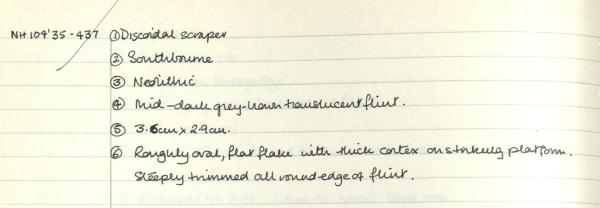 NH 104'35-437 ① Discoidal scraper
② Southbourne
③ Neolithic
④ Mid-dark grey-brown translucent flint.
⑤ 3.6cm x 2.9cm.
⑥ Roughly oval, flat flake with thick cortex on striking platform.
Steeply trimmed all round edge of flint.